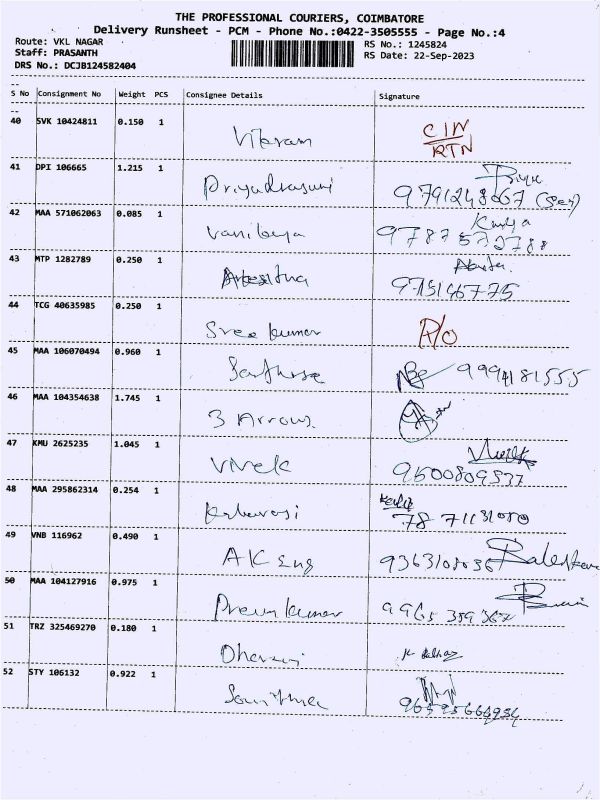 THE PROFESSIONAL COURIERS, COIMBATORE
Delivery Runsheet - PCM - Phone No.:0422-3505555 - Page No.:4
Route: VKL NAGAR RS No.: 1245824
Staff: PRASANTH RS Date: 22-Sep-2023
DRS No.: DCJB124582404
S No Consignment No Weight PCS Consignee Details Signature
40 SVK 10424811 0.150 1 Vikram CIN
RTN
41 DPI 106665 1.215 1 Priyadharsuni
42 MAA 571062063 0.085 1 Kavya
9787572788
43 MTP 1282789 0.250 1
44 TCG 40635985 0.250 1 Sree kumar R/O
45 MAA 106070494 0.960 1 9994181555
46 MAA 104354638 1.745 1 3 Arrows.
47 KMU 2625235 1.045 1 Vivek
9500809537
48 MAA 295862314 0.254 1
7871131080
49 VNB 116962 0.490 1 AK Eng
50 MAA 104127916 0.975 1 Premkumar
9965 359367
51 TRZ 325469270 0.180 1
52 STY 106132 0.922 1